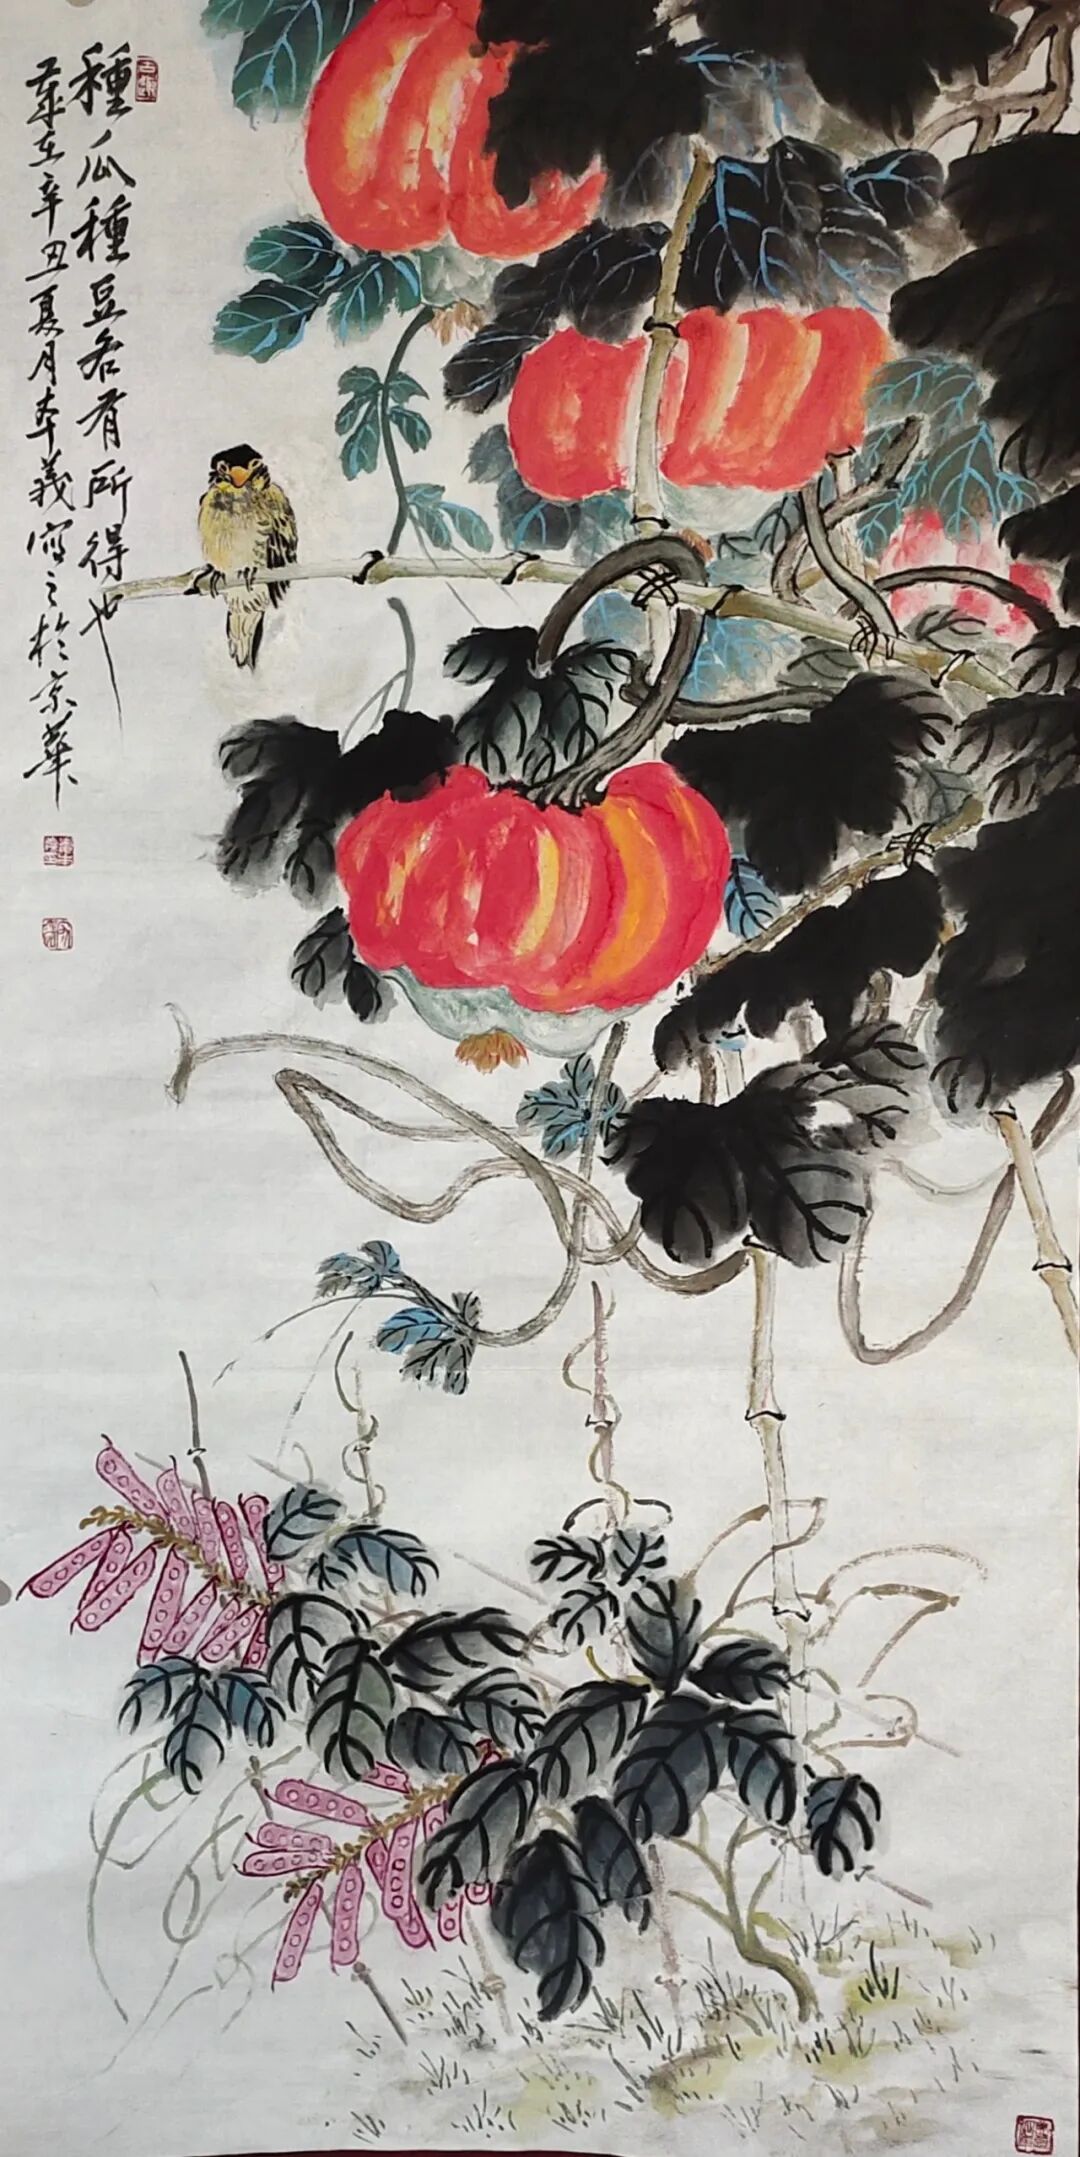 種瓜種豆各有所得也
歲在辛丑夏月本義寫之於京華